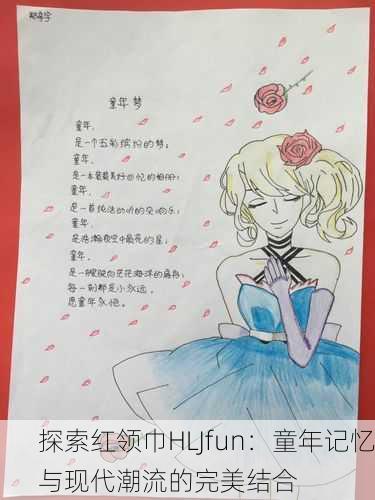 童年梦
童年,
是一个五彩缤纷的梦;
童年,
是一本美好回忆的相册;
童年,
是一首纯洁动听的交响乐;
童年,
是浩瀚夜空中最亮的星;
童年,
是一艘驶向茫茫海洋的扁舟;
每一刻都是小永远。
愿童年永恒。
探索红领巾HLJfun：童年记忆
与现代潮流的完美结合